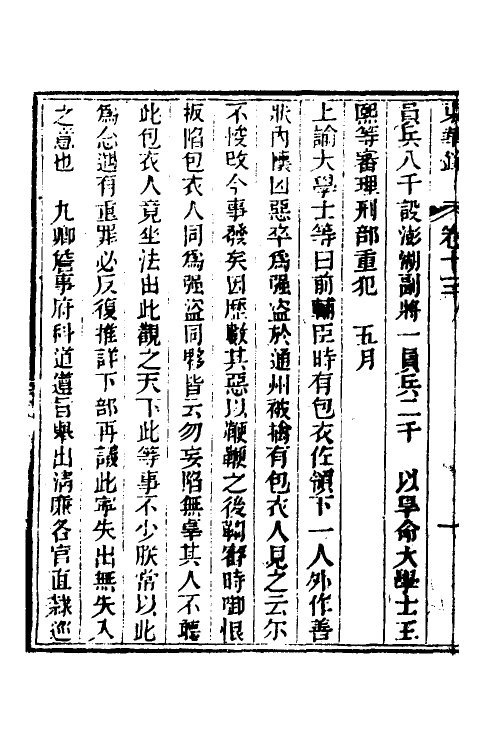 東華錄 卷十三
員兵八千設澎湖副將一員兵二千 以旱命大學士王
熙等審理刑部重犯 五月
上諭大學士等曰前輔臣時有包衣佐領下一人外作善
狀內懷囚惡卒爲强盜於通州被擒有包衣人見之云尔
不悛改今事發矣因歷數其惡以鞭鞭之後鞫審時啣恨
扳陷包衣人同爲强盜同夥皆云勿妄陷無辜其人不聽
此包衣人竟坐法由此觀之天下此等事不少朕常以此
爲念遇有重罪必反復推詳下部再議此寧失出無失入
之意也 九卿詹事府科道遵旨舉出清廉各官直隸巡